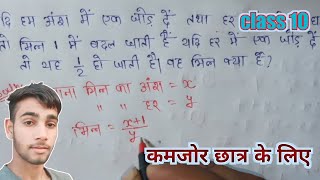 यदि हम अंश में एक जोड़ दें तथा हर
class 10
तो भिन्न 1 में बदल जाती है यदि हर में एक जोड़ दें
तो यह 1/2 हो जाती है। वह भिन्न क्या है?
माना भिन्न का अंश = x
" " हर = y
भिन्न = x+1/y
कमजोर छात्र के लिए